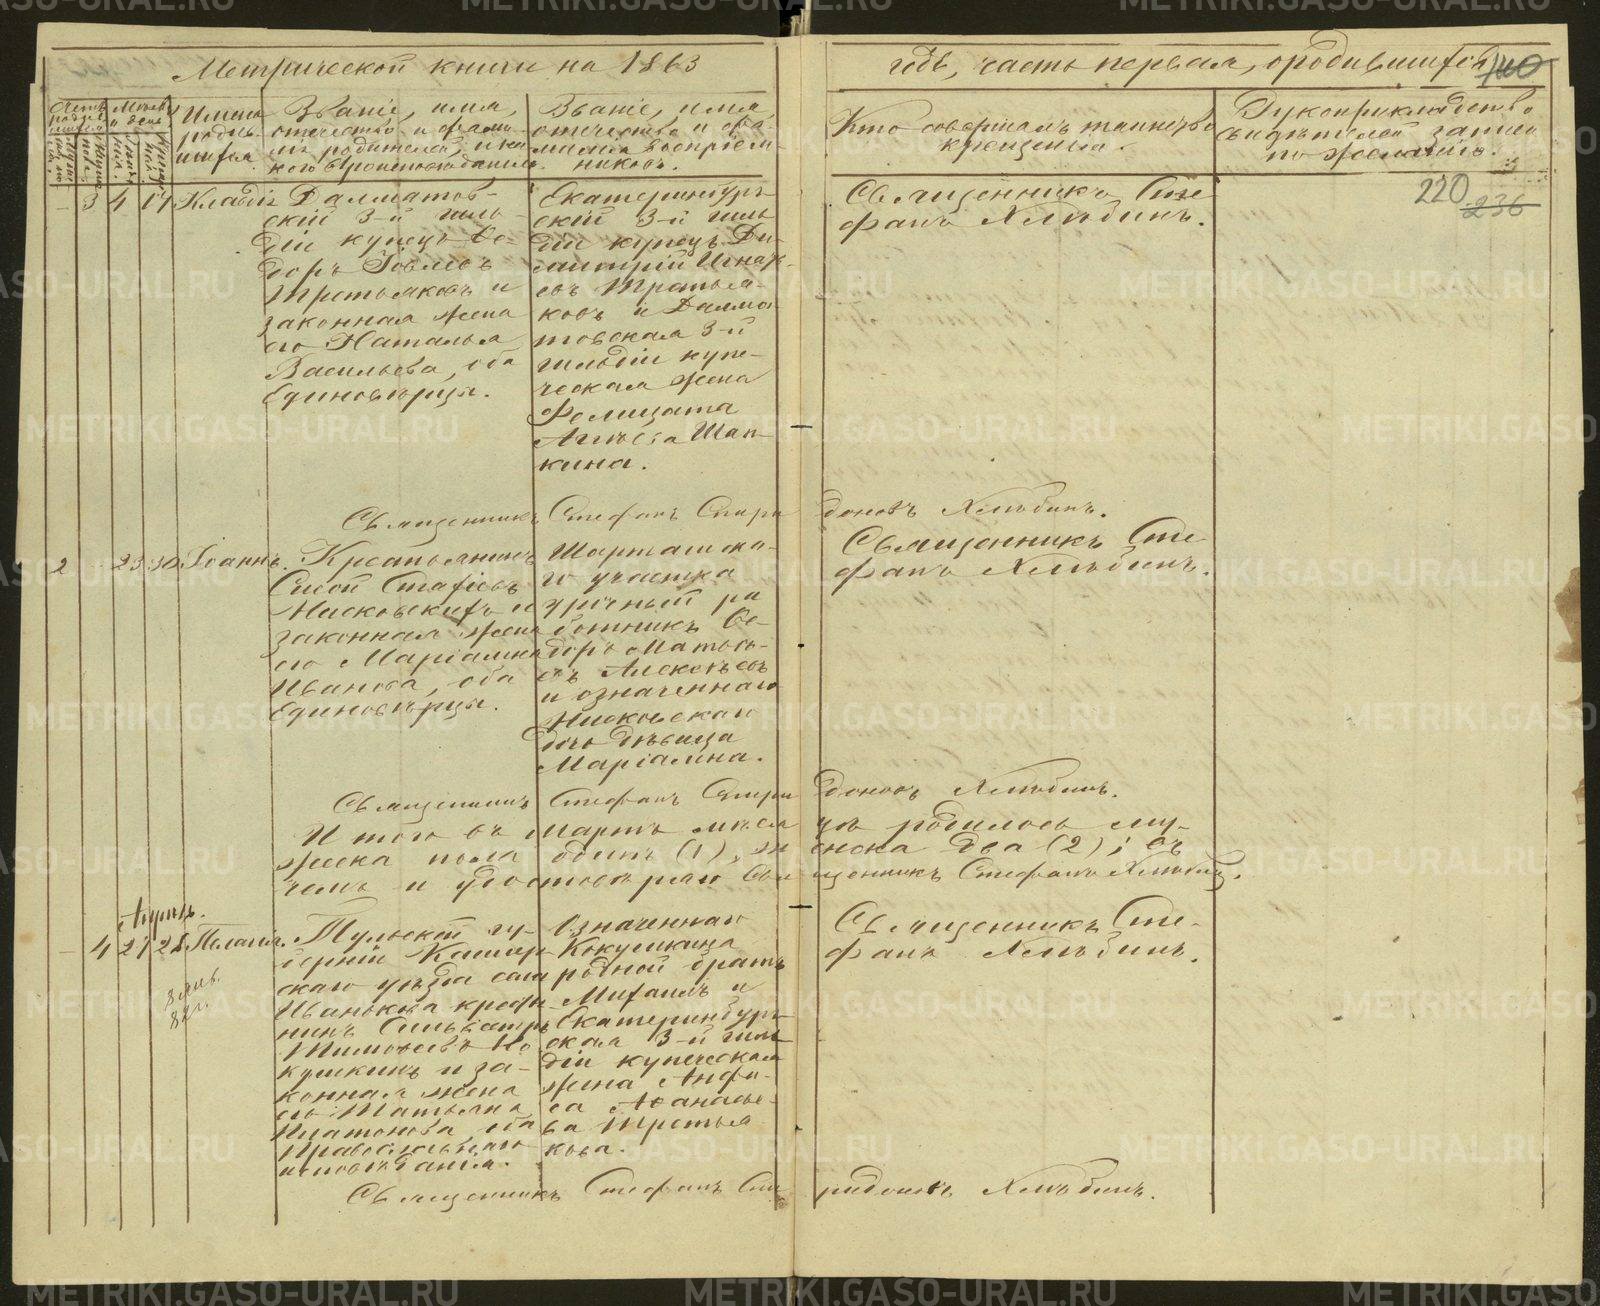 Метрической книги на 1863
годъ, часть первая, о родившихся
140
220
236
Имена родив-
шихся
Званіе, имя,
отчество и фами-
лія родителей, и ка-
кого вѣроисповѣданія.
Званіе, имя
отчество и фа-
милія воспріем-
никовъ.
Кто совершалъ таинство
крещенія.
Рукоприкладство
свидѣтелей записи
по желанію.
3 4 17 Клавдія
Далматов-
скій 3-й гиль-
діи купецъ Ѳе-
доръ Іовлевъ
Третьяковъ и
законная жена
его Наталья
Васильева, оба
Единовѣрцы.
Екатеринбург-
скій 3-й гиль
діи купецъ Ди-
митрій Игнать-
евъ Третья-
ковъ и Далма-
товская 3-й
гильдіи купе-
ческая жена
Фелицата
Шап-
кина.
Священникъ Сте-
фанъ Хлѣбинъ.
Священникъ Стефанъ Спири доновъ Хлѣбинъ.
2 23 30 Іоаннъ.
Крестьянинъ
Сысой Стафіевъ
и
законная жена
его Маріамна
Иванова, оба
Единовѣрцы.
Шарташска-
го участка
урочный ра
ботникъ Ѳе-
доръ Матвѣ-
евъ Алексѣевъ
и означеннаго
дочь дѣвица
Маріамна.
Священникъ Сте-
фанъ Хлѣбинъ.
Священникъ Стефанъ Спири доновъ Хлѣбинъ.
Итого въ Мартѣ мѣся цѣ родилось му-
жеска пола одинъ (1), же нска два (2); въ
чемъ и удостовѣряю Свя щенникъ Стефанъ Хлѣбинъ.
Апрѣль.
4 27 28 Пелагія.
8 янв.
82 г.
Тульской гу-
берніи Кашир-
скаго уѣзда села
Иванькова крестья-
нинъ Сильвестръ
Тимофеевъ Ко-
кушкинъ и за-
конная жена
его Татьяна
Платонова, оба
Православнаго
исповѣданія.
Означеннаго
Кокушкина
родной братъ
Михаилъ и
Екатеринбург-
ская 3-й гиль
діи купеческая
жена Анфи-
са Аѳанасье-
ва Третья
кова.
Священникъ Сте-
фанъ Хлѣбинъ.
Священникъ Стефанъ Спи ридоновъ Хлѣбинъ.
METRIKI.GASO-URAL.RU